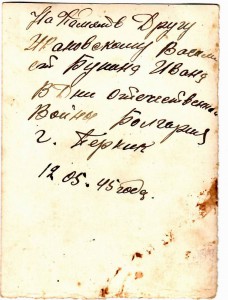 На Память Другу
Ивановскому Васил
от Бунина Ивана
В Дни отечествен
Войны Болгария
г. Перник
12 05. 45 года.